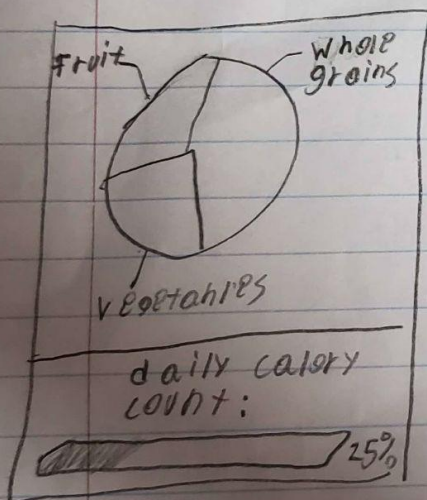 Fruit
Whole
grains
vegetables
daily calory
count:
25%